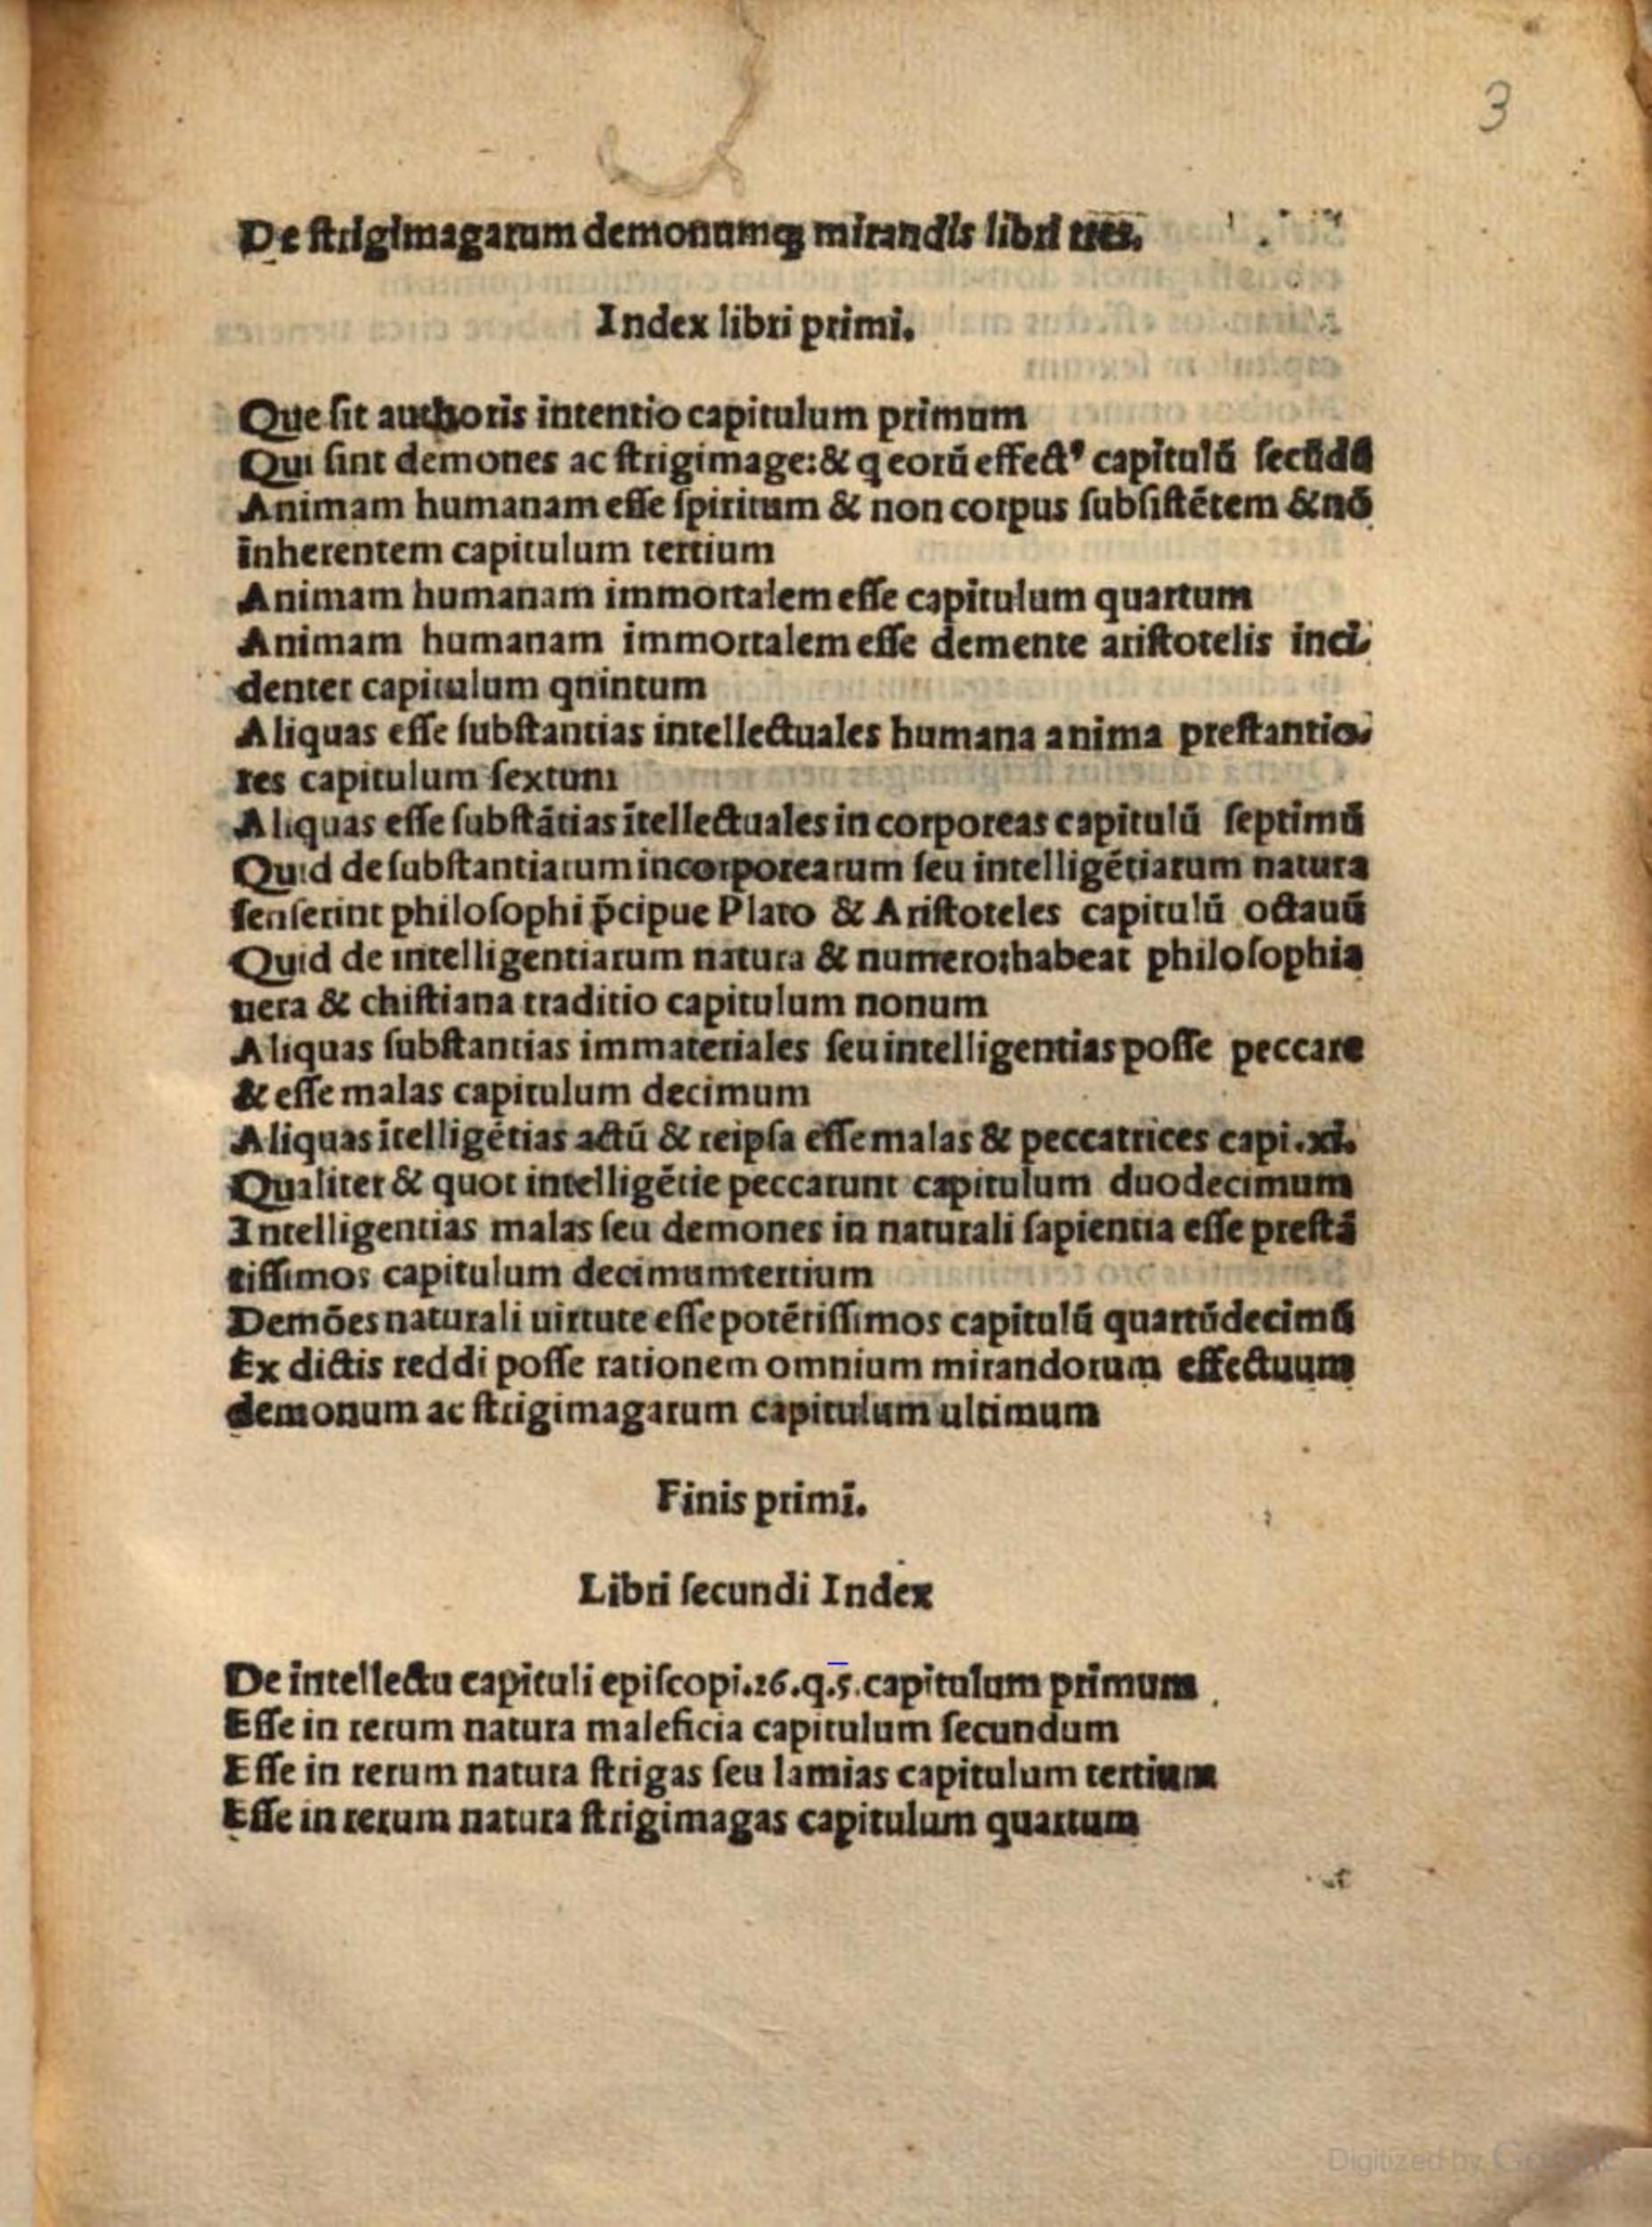 3
De ſtrigimagarum demonumqꝫ mirandis libri tres.
Index libri primi.
Que ſit authoris intentio capitulum primum
Qui ſint demones ac ſtrigimage:& q eorū effectꝰ capitulū ſecūdū
Animam humanam eſſe ſpiritum & non corpus ſubſiſtētem & nō
inherentem capitulum tertium
Animam humanam immortalem eſſe capitulum quartum
Animam humanam immortalem eſſe demente ariſtotelis inci-
denter capitulum qnintum
Aliquas eſſe ſubſtantias intellectuales humana anima preſtantio-
res capitulum ſextum
Aliquas eſſe ſubſtātias ītellectuales in corporeas capitulū ſeptimū
Quid de ſubſtantiarum incorporearum ſeu intelligētiarum natura
ſenſerint philoſophi p̄cipue Plato & Ariſtoteles capitulū octauū
Quid de intelligentiarum natura & numero:habeat philoſophia
uera & chiſtiana traditio capitulum nonum
Aliquas ſubſtantias immateriales ſeu intelligentias poſſe peccare
& eſſe malas capitulum decimum
Aliquas ītelligētias actū & reipſa eſſe malas & peccatrices capi.xi.
Qualiter & quot intelligētie peccarunt capitulum duodecimum
Intelligentias malas ſeu demones in naturali ſapientia eſſe preſtā
tiſſimos capitulum decimumtertium
Demōes naturali uirtute eſſe potētiſſimos capitulū quartūdecimū
Ex dictis reddi poſſe rationem omnium mirandorum effectuum
demonum ac ſtrigimagarum capitulum ultimum
Finis primi.
Libri ſecundi Index
De intellectu capituli epiſcopi.26.q.5.capitulum primum
Eſſe in rerum natura maleficia capitulum ſecundum
Eſſe in rerum natura ſtrigas ſeu lamias capitulum tertium
Eſſe in rerum natura ſtrigimagas capitulum quartum
Digitized by Google